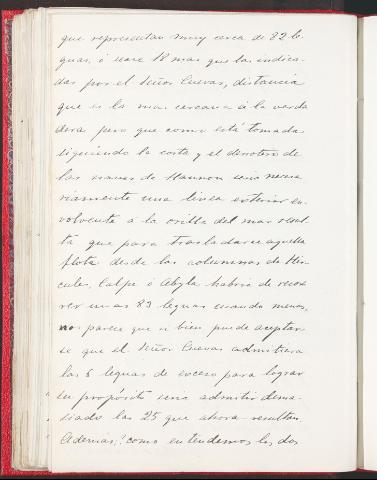 que representan muy cerca de 82 le
guas, ó sean 18 mas que las indica
das por el Señor Cuevas, distancia
que es la mas cercana á la verda
dera pero que como está tomada
siguiendo la costa y el derrotero de
las naves de Hannon seria necesa
riamente una linea exterior en
volvente a la orilla del mar resul
ta que para trasladarse aquella
flota desde las columnas de Hér
cules, Calpe ó Abyla habria de recor
rer unas 89 leguas cuando menos,
nos parece que si bien puede aceptar
se que el Señor Cuevas admitiera
las 6 leguas de exceso para lograr
su propósito seria admitir dema
siado las 25 que ahora resultan.
Ademas, ¿como entendemos los dos